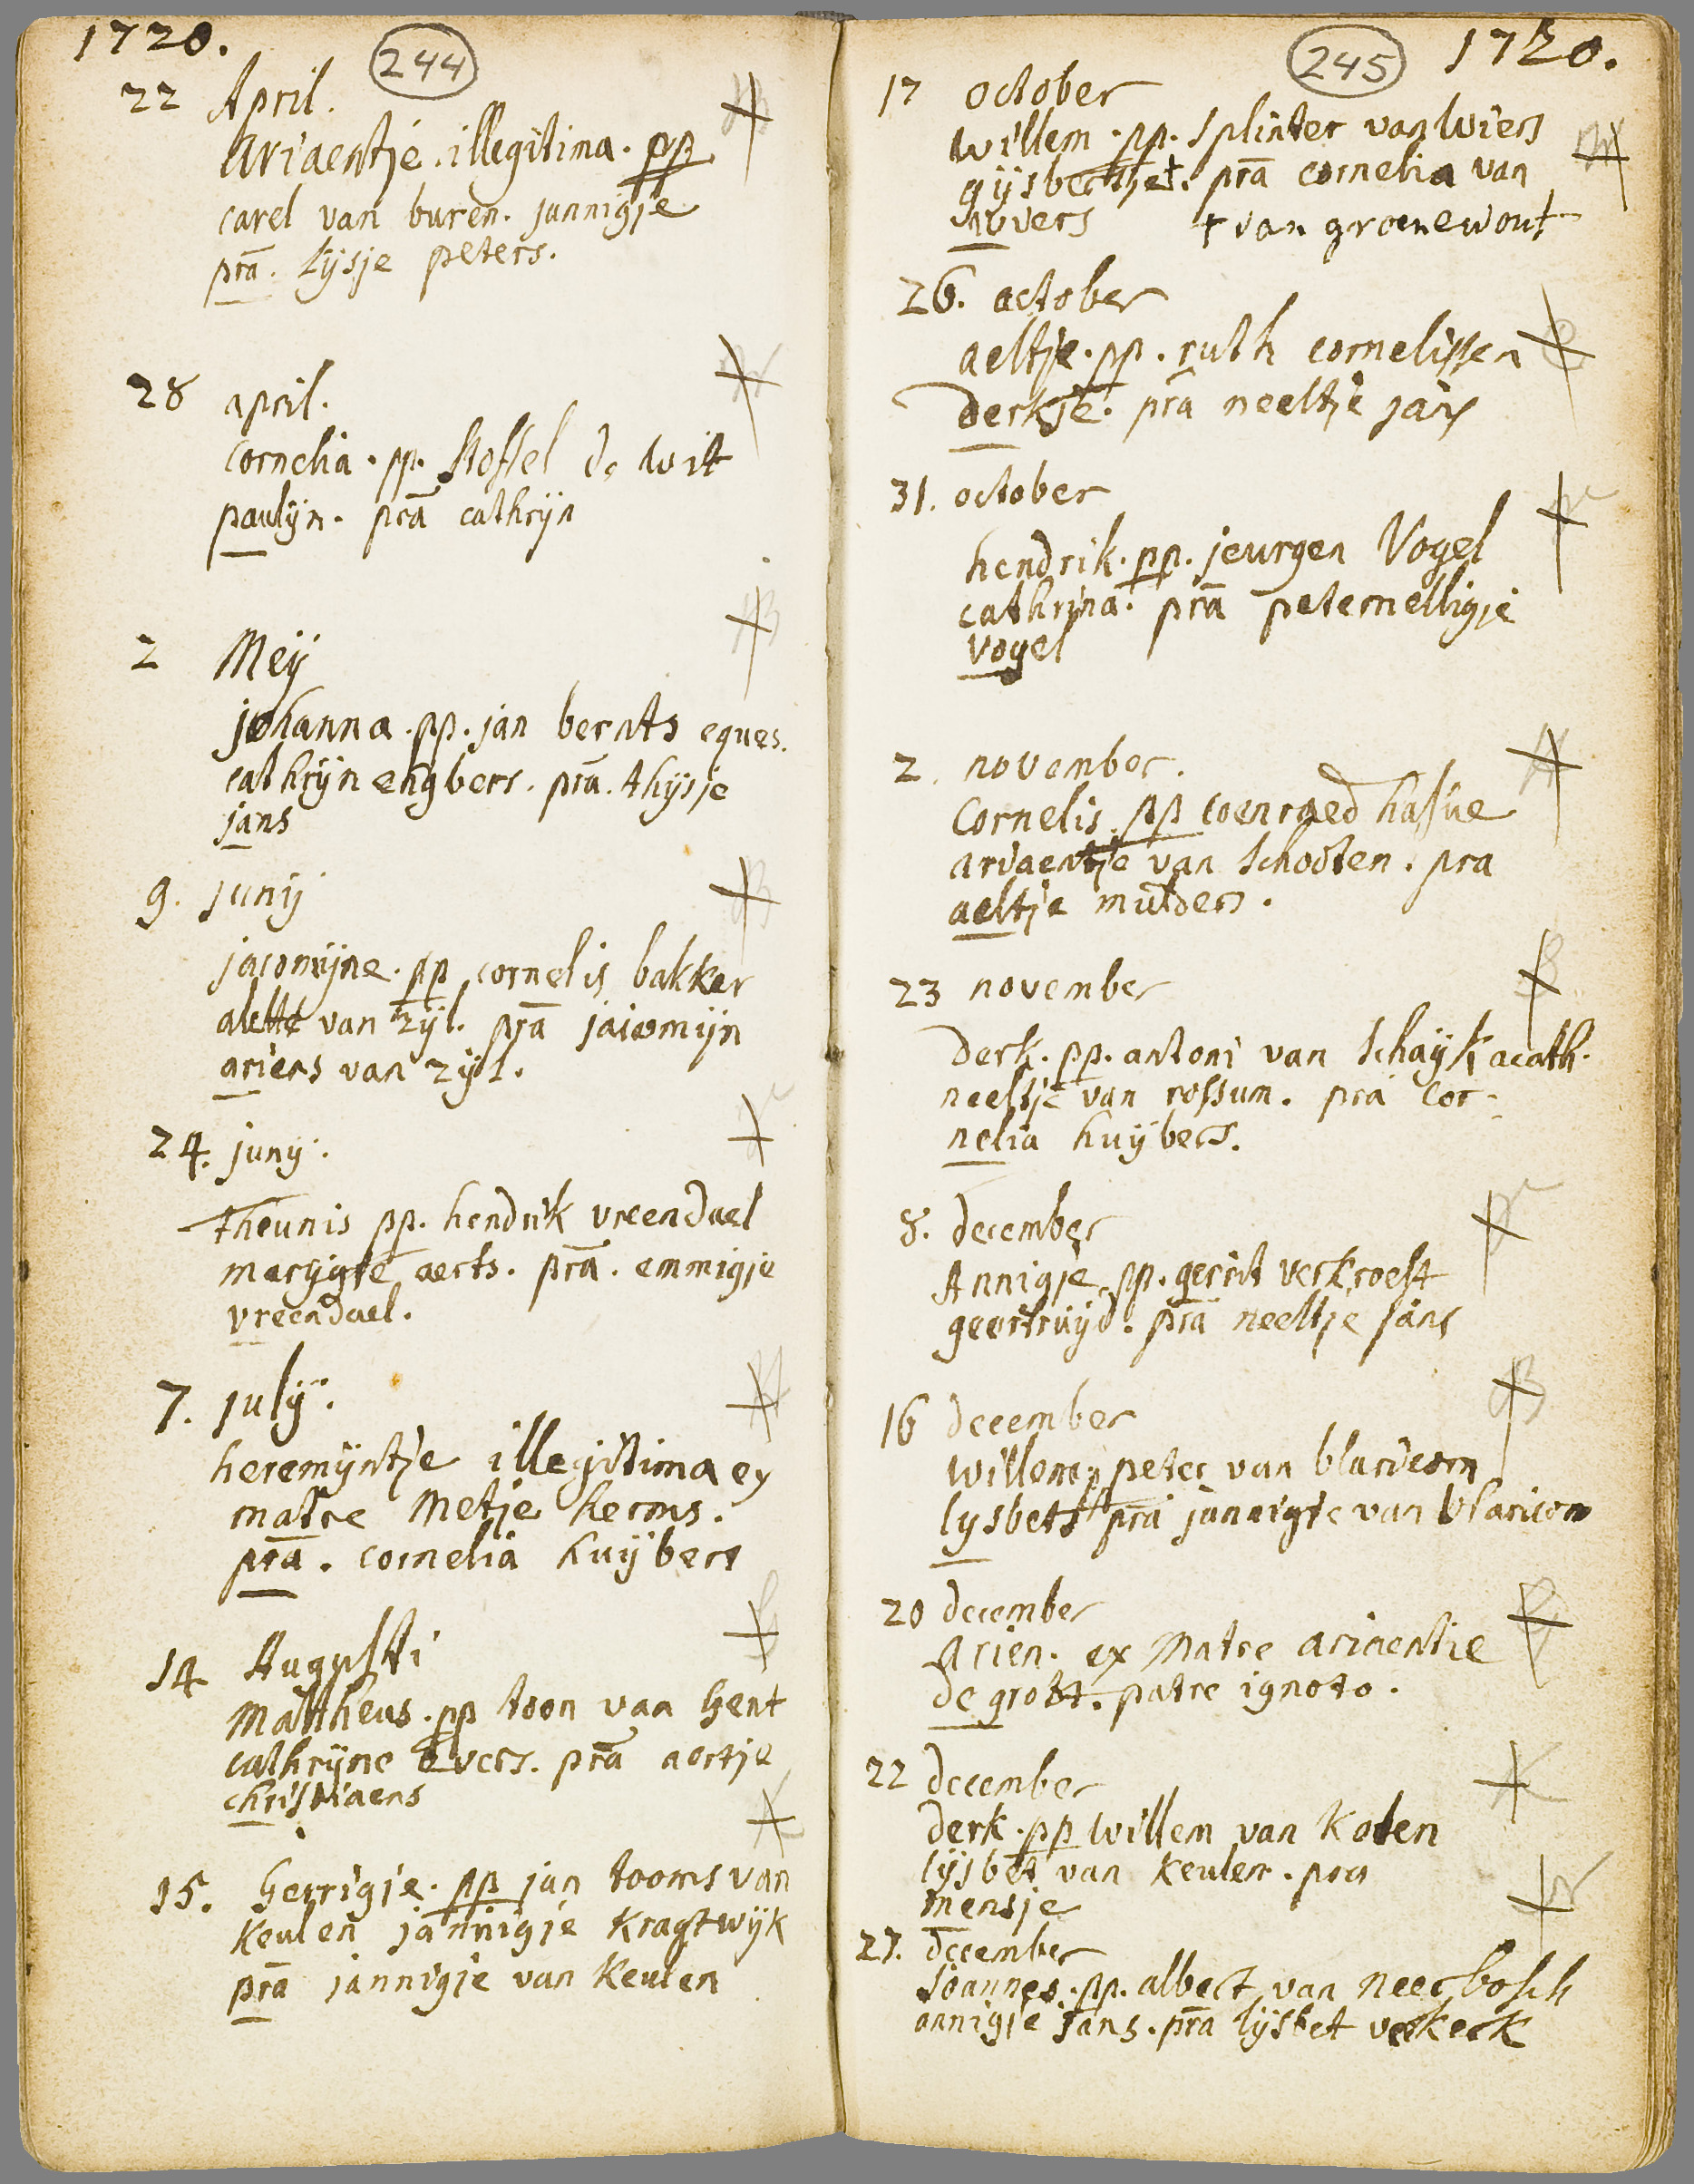 1720.
244
22 April.
Ariaentje. illegitima. pp
carel van buren. jannigje
prā. lijsje peters.
28 april.
cornelia. pp. Stoffel de wit
paulijn. prā cathrijn
2 Meij
johanna. pp. jan bernts eques.
cathrijn engbers. prā. thijsje
jans
9. junij
jacomijne. pp cornelis bakker
aletta van zijl. prā jacomijn
ariens van zijl.
24. junij.
theunis pp. hendrik vreendael
marijgje aerts. prā. emmigje
vreendael.
7. julij.
heremijntje illegitima ex
matre Metje herms.
prā. cornelia huijbers
14 Augusti
Mattheus. pp toon van Gent
cathrijne Evers. prā aertje
christiaens
15. Gerrigje. pp jan tooms van
Keulen jannigje Kragtwijk
prā jannigje van Keulen
245
1720.
17 october
willem. pp. Splinter van Wiers
gijsbertje†. prā cornelia van
wiers † van groenewout
26. october
aeltje. pp. ruth cornelissen
derkje. prā neeltje jans
31. october
hendrik. pp. jeurgen Vogel
cathrina. prā peternelligje
Vogel
2. november.
Cornelis. pp coenraed hasue
ariaentje van Schooten. pra
aeltje mulders.
23 november
Derk. pp. antoni van Schayk acath.
neeltje van rossum. pra cor-
nelia huijbers.
8. december
Annigje. pp. gerrit verkroeft
geertruijd. prā neeltje jans
16 december
willem pp peter van blaricom
lysbet prā jannigje van blaricom
20 december
Arien. ex Matre ariaentie
de groot. patre ignoto.
22 december
derk. pp willem van Koten
lijsbet van Keulen. pra
mensje
27. december
Joannes. pp. albert van neerbosch
annigje jans. prā lijsbet verkerk